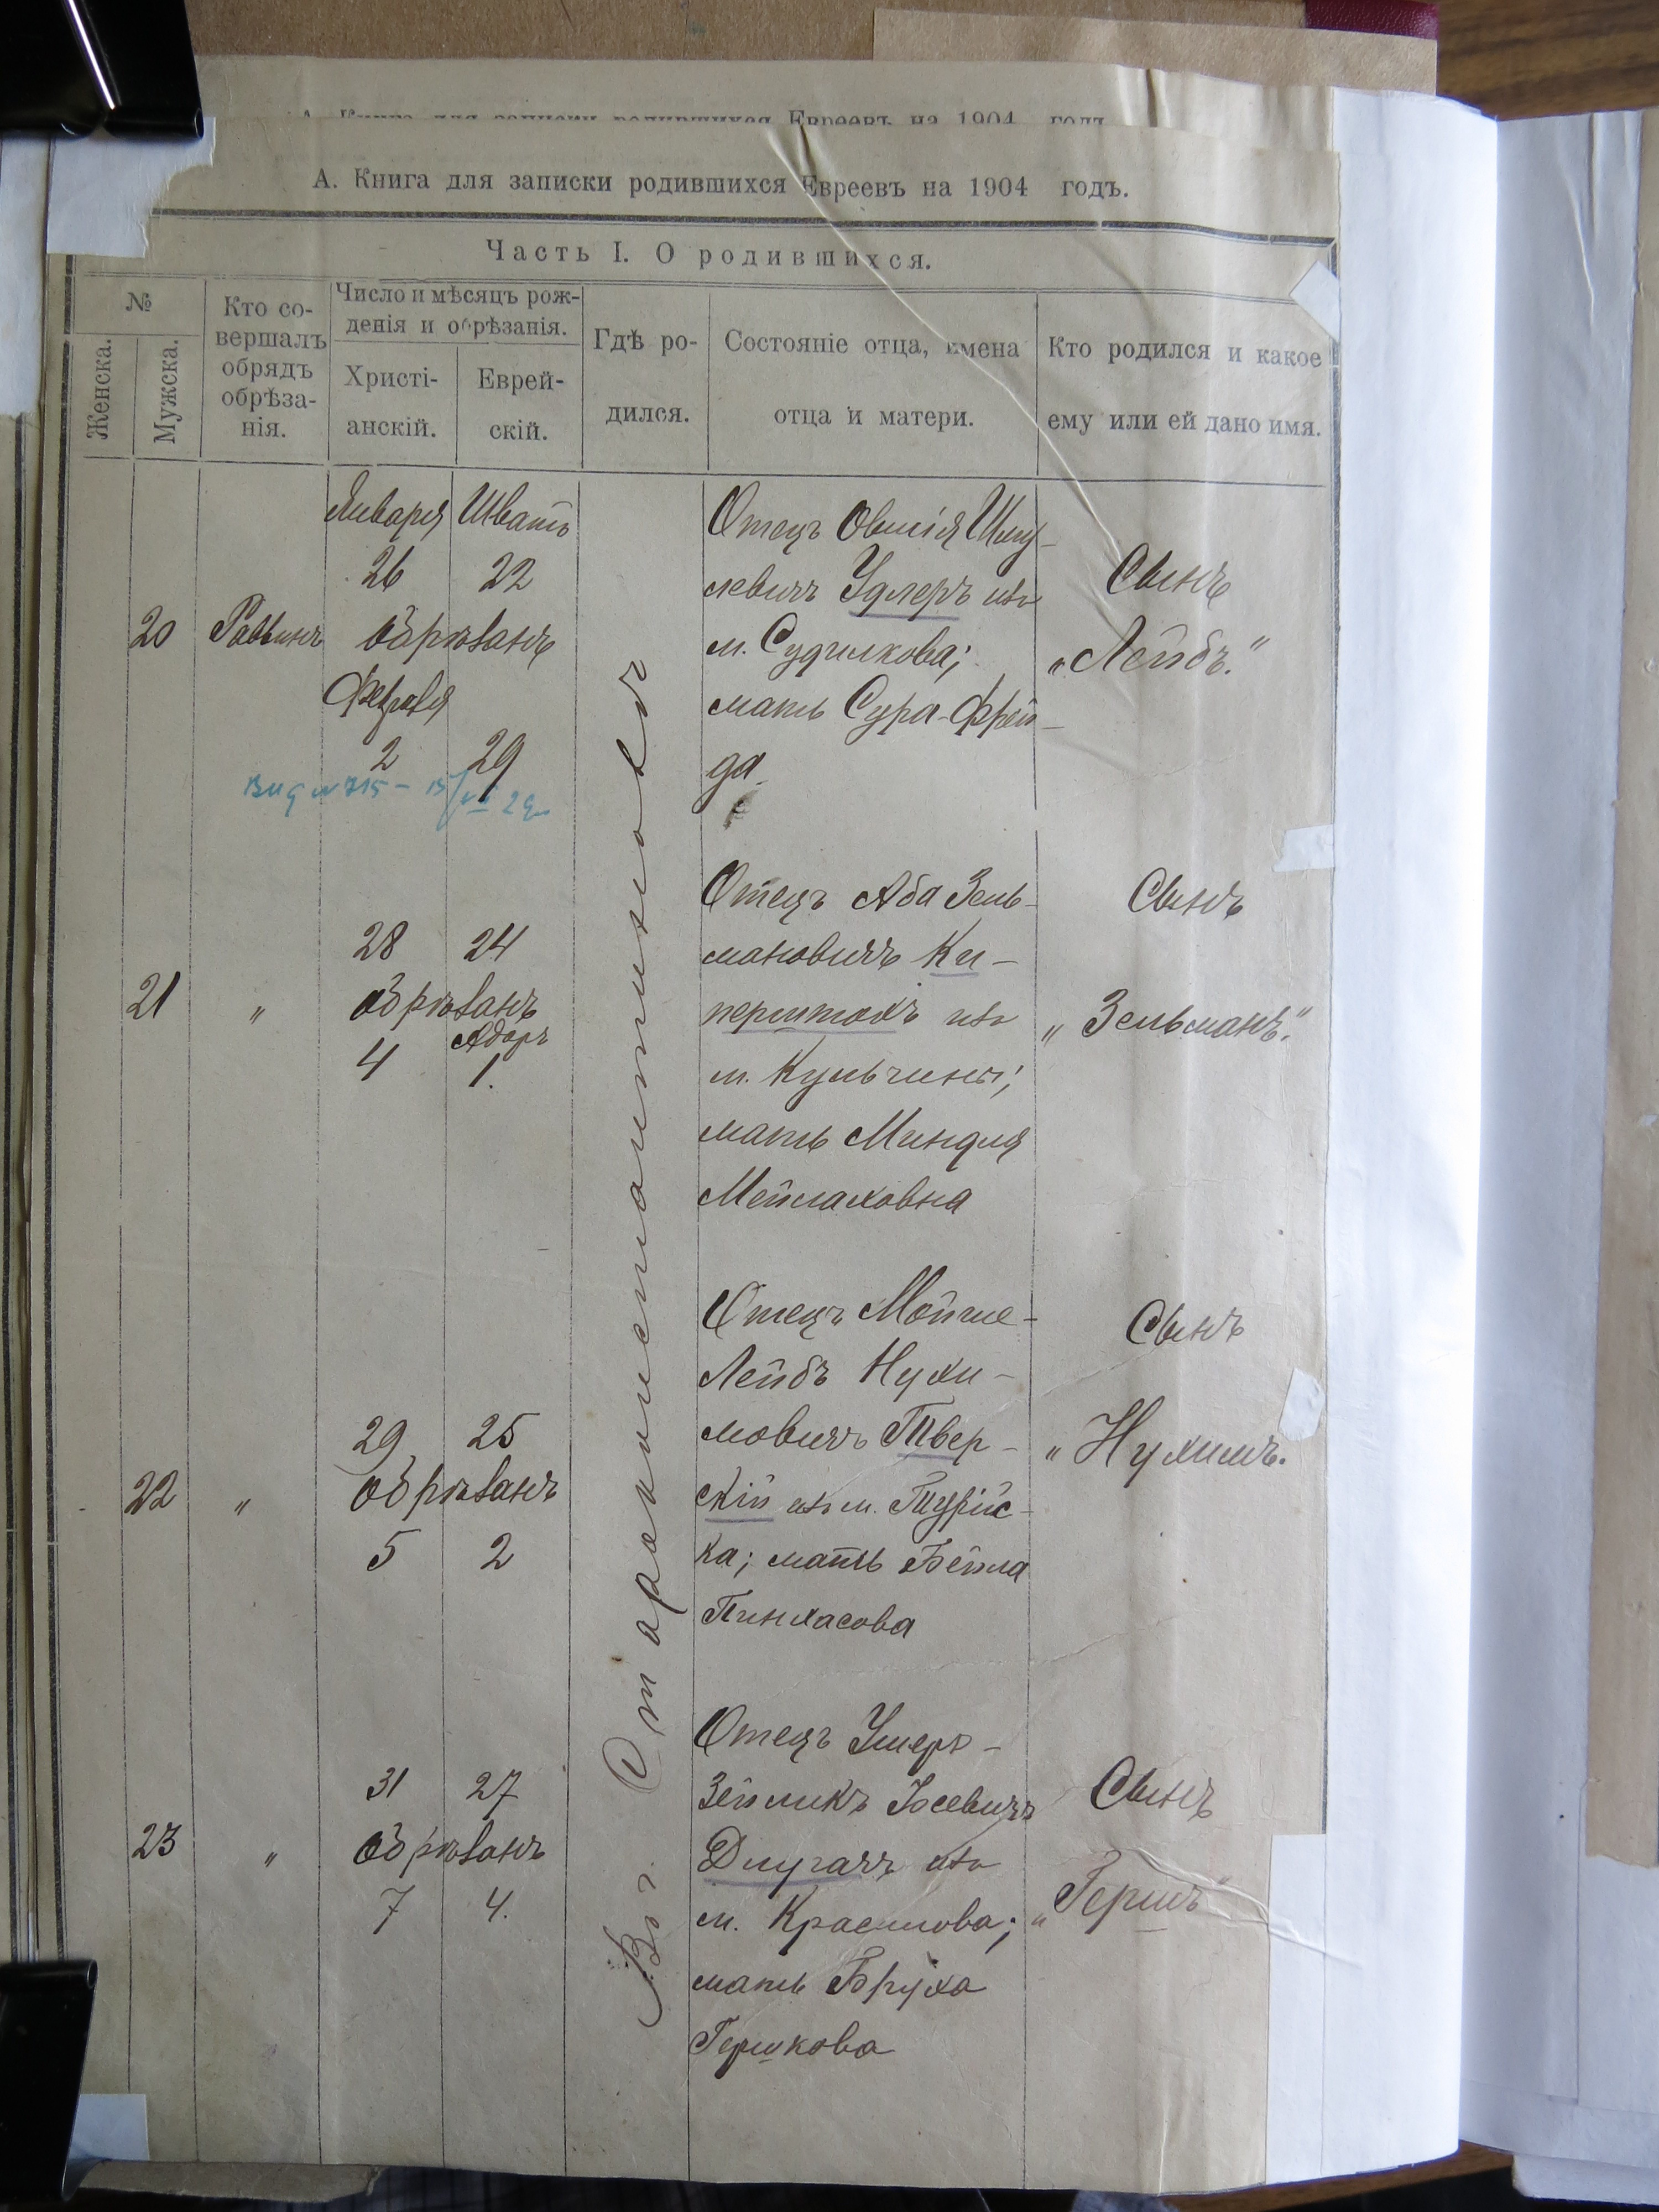 А. Книга для записки родившихся Евреевъ на 1904 годъ.
А. Книга для записки родившихся Евреевъ на 1904 годъ.
Часть I. О родившихся.
№
Женска.
Мужска.
Кто со-
вершалъ
обрядъ
обрѣза-
нія.
Число и мѣсяцъ рож-
денія и обрѣзанія.
Христі-
анскій.
Еврей-
скій.
Гдѣ ро-
дился.
Состояніе отца, имена
отца и матери.
Кто родился и какое
ему или ей дано имя.
Въ г. Староконстантиновѣ
20
Раввинъ
Января Шватъ
26 22
обрѣзанъ
Февраля
2 29
Отецъ Овшія Шму-
левичъ Удлеръ изъ
м. Судилкова;
мать Сура-Фрей-
да
Сынъ
„Лейбъ."
21
„
28 24
обрѣзанъ
Адаръ
4 1.
Отецъ Аба Зель-
мановичъ Ки-
перштокъ изъ
м. Кульчины;
мать Миндля
Мейлаховна
Сынъ
„Зельманъ."
22
„
29 25
обрѣзанъ
5 2
Отецъ Мойше-
Лейбъ Нухи-
мовичъ Твер-
скій изъ м. Турійс-
ка; мать Бейла
Пинхасова
Сынъ
„Нухимъ.
23
„
31 27
обрѣзанъ
7 4.
Отецъ Ушеръ-
Зейликъ Іосевичъ
Длугачъ изъ
м. Красилова;
мать Бруха
Гершкова
Сынъ
„Гершъ"